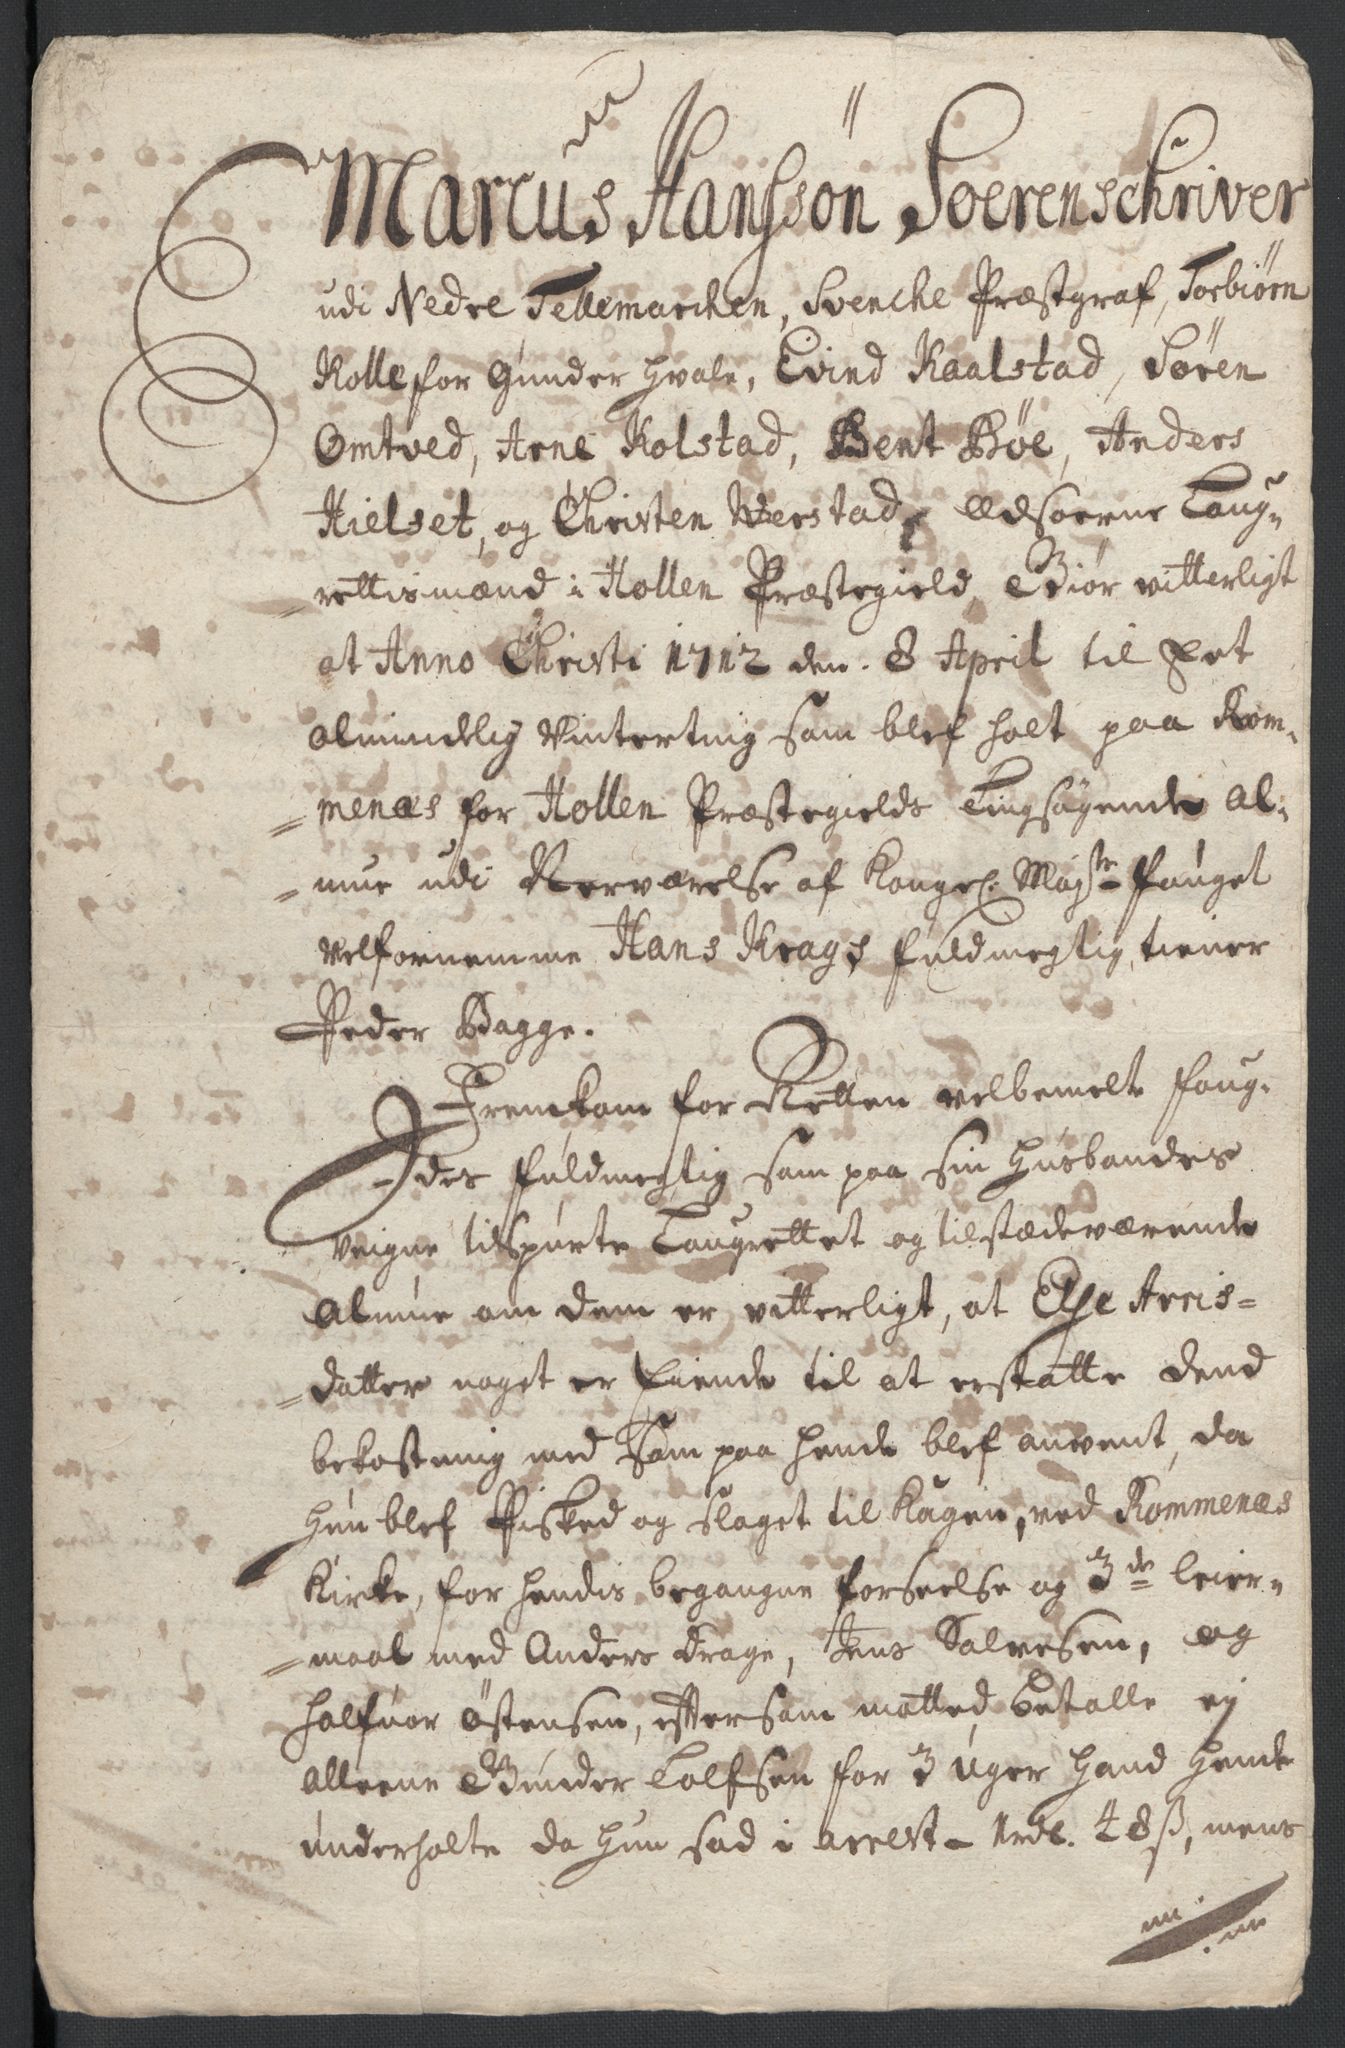 Marcus Hanssön Soerenschriver
udi Nedre Tellemarchen, Svenche Præstgraf, Torbiørn
Kolle for Gunder Hvale, Evind Kaalstad, Søren
Omtved, Arne Kolstad, Bent Bøe, Anders
Hielset, og Christen Werstad, Edsoerne Laug-
rettismænd i Hollen Præstegield, Giør vitterligt
at Anno Christi 1712 den 8 April til Det
Almindelig Vinterting som blef holt paa Rom-
menæs for Hollen Præstegields Tingsøgende Al-
mue udi Nerværelse af Kongel. Mayst: Fouget
velfornemme Hans Krags fuldmegtig tiener
Peder Bagge.
Fremkom for Retten velbemelte foug-
des fuldmegtig som paa sin Husbondes
veigne tilspurte Laugrettet og tilstædeværende
Almue om dem er vitterligt, at Else Arris-
datter noget er Eiende til at erstatte dend
bekostning med som paa hende blef anvent, da
hun blef Pisked og slaget til Kagen, ved Rommenæs
Kirke, for hendis begangne forseelse og 3de leier-
maal med Anders Drage, Jens Salvesen, og
Halfvor Östensen, efftersom matted betalle ej
alleene Gunder Lolfsen for 3 Uger hand hende
underholte da hun sad i arrest 1 rdl. 48 ß, mens